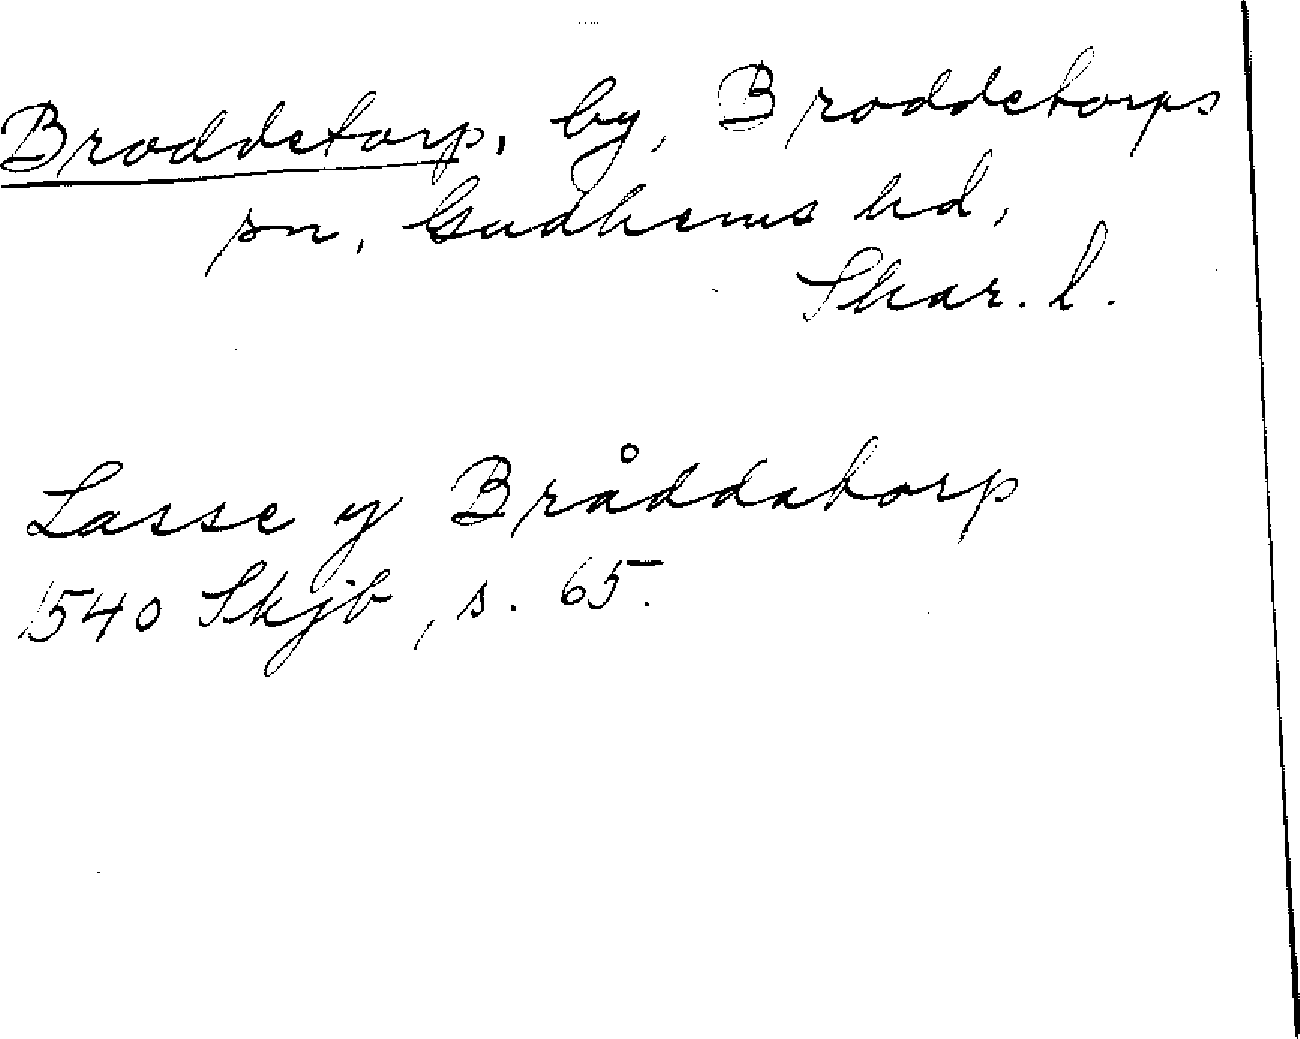 Broddetorp, by, Broddetorps
sn, Gudhems hd,
Skar. l.
Lasse y Bråddatorp
1540 Skjb, s. 65.